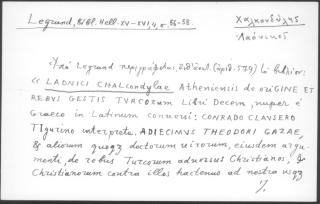 Legrand, Bibl. Hell. XV-XVI, 4, σ. 56-58.
Χαλκονδύλης
Λαόνικος
Ὑπὸ Legrand περιγράφεται, (ἀριθ. 579) τὸ βιβλίον:
« LAONICI CHALCONDYLAE Atheniensis de ORIGINE ET
REBUS GESTIS TURCORUM Libri Decem, nuper è
Graeco in Latinum conversi: CONRADO CLAUSERO
TIgurino interprete. ADIECIMUS THEODORI GAZAE,
& aliorum quoqz doctorum virorum, eiusdem argu-
menti, de rebus Turcorum adversus Christianos, &
Christianorum contra illos hactenus ad nostra usqz
%.